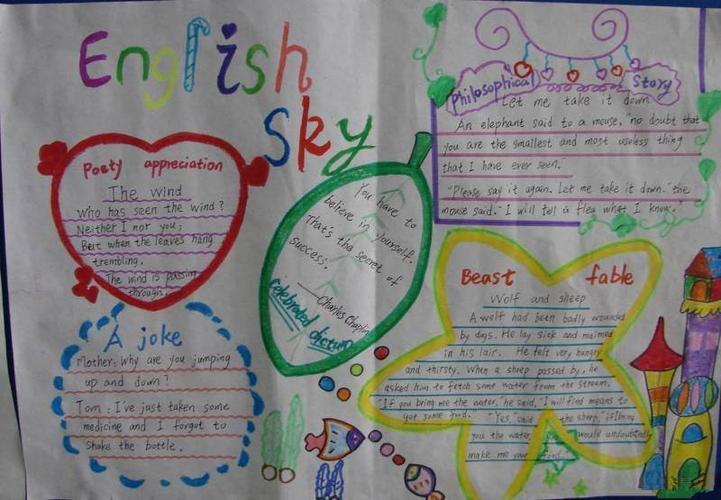 English
Sky
Poety appreciation
The wind
Who has seen the wind?
Neither I nor you;
But when the leaves hang
trembling.
The wind is passing
through.
A joke
Mother: Why are you jumping
up and down?
Tom: I've just taken some
medicine and I forgot to
shake the bottle.
You have to
believe in yourself.
That's tha secret of
success.
Charles Chaplin
celebrated dictum
philosophical Story
Let me take it down
An elephant said to a mouse, "no doubt that
you are the smallest and most useless thing
that I have ever seen.
"Please say it again. Let me take it down." the
mouse said. "I will tell a flea what I know."
Beast fable
Wolf and sheep
A wolf had been badly wounded
by dogs. He lay sick and maimed
in his lair. He felt very hungry
and thirsty. When a sheep passed by, he
asked him to fetch some water from the stream.
"If you bring me the water," he said, "I will find means to
get some food." "Yes," said the sheep, "if I bring
you the water, would undoubtedly
make me your food."